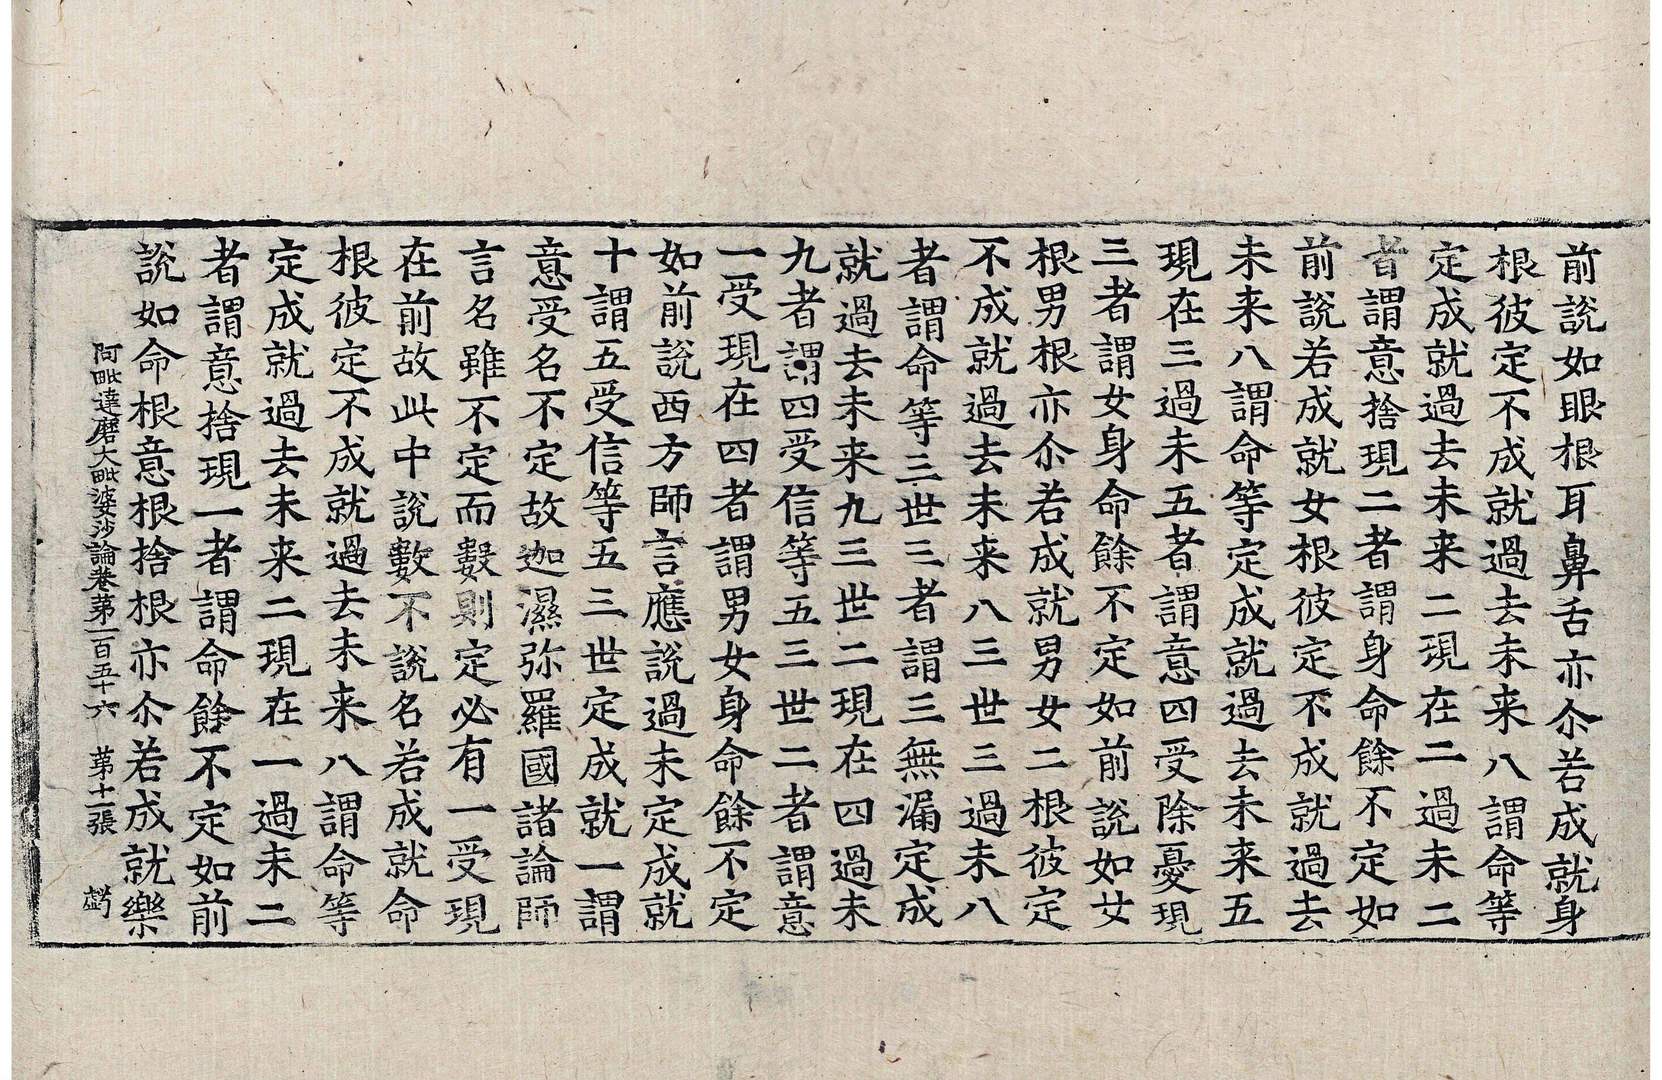 前說如眼根耳鼻舌亦尒若成就身
根彼定不成就過去未来八謂命等
定成就過去未来二現在二過未二
者謂意捨現二者謂身命餘不定如
前說若成就女根彼定不成就過去
未来八謂命等定成就過去未来五
現在三過未五者謂意四受除憂現
三者謂女身命餘不定如前說如女
根男根亦尒若成就男女二根彼定
不成就過去未来八三世三過未八
者謂命等三世三者謂三無漏定成
就過去未来九三世二現在四過未
九者謂四受信等五三世二者謂意
一受現在四者謂男女身命餘不定
如前說西方師言應說過未定成就
十謂五受信等五三世定成就一謂
意受名不定故迦濕弥羅國諸論師
言名雖不定而數則定必有一受現
在前故此中說數不說名若成就命
根彼定不成就過去未来八謂命等
定成就過去未来二現在一過未二
者謂意捨現一者謂命餘不定如前
說如命根意根捨根亦尒若成就樂
阿毗達磨大毗婆沙論卷第一百五十六 第十二張 虧